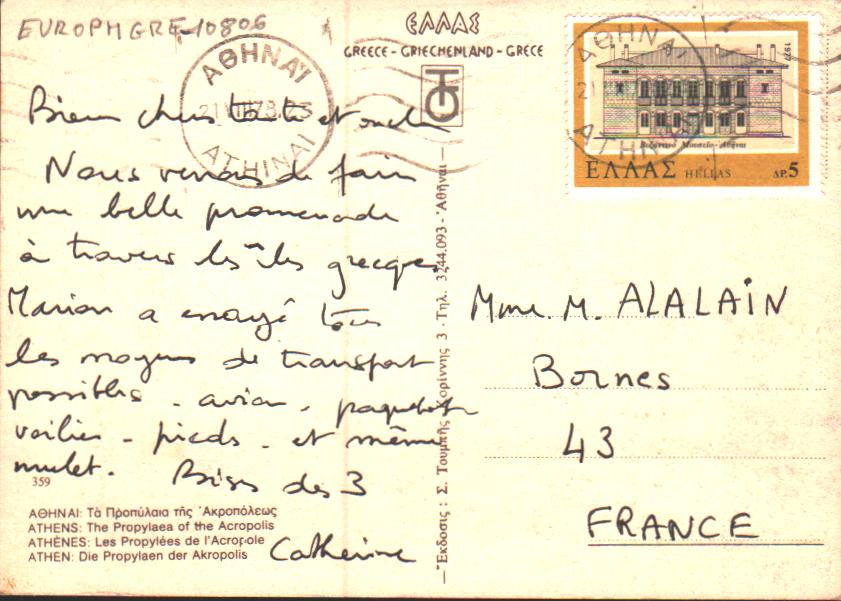 EUROPHGRE-10806
ΕΛΛΑΣ
GREECE - GRIECHENLAND - GRECE
ΑΘΗΝΑΙ
21 VIII 78
ATHINAI
1977
Βυζαντινό Μουσείο - Αθήναι
ΕΛΛΑΣ HELLAS ΔΡ. 5
ΑΘΗΝΑΙ
21
ATHINAI
Bien chers tante et oncle
Nous venons de faire
une belle promenade
à travers les îles grecques
Marion a essayé tous
les moyens de transport
possibles - avion - paquebot
voilier - pieds - et même
mulet. Bises des 3
Catherine
359
ΑΘΗΝΑΙ: Τὰ Προπύλαια τῆς Ἀκροπόλεως
ATHENS: The Propylaea of the Acropolis
ATHÈNES: Les Propylées de l'Acropole
ATHEN: Die Propylaen der Akropolis
Ἔκδοσις: Σ. Τουμπῆς Κορίννης 3 - Τηλ. 3244.093 - Ἀθῆναι
Mme. M. ALALAIN
Bornes
43
FRANCE